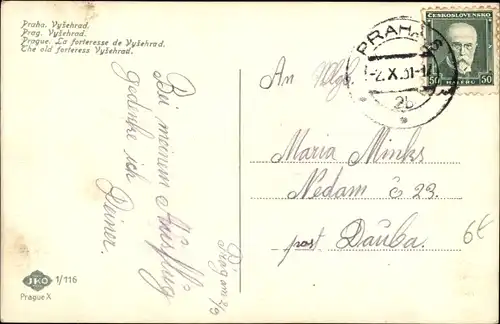 Praha. Vyšehrad.
Prag. Vyšehrad.
Prague. La forteresse de Vyšehrad.
The old forteress Vyšehrad.
ČESKOSLOVENSKO
50 HALÉŘŮ 50
PRAHA
-2.X.31-1
2b
Bei meinem Ausflug
gedenke ich
Deiner.
Prag am
An
Maria Minks
Nedam č 23.
post Dauba.
JKO
1/116
Prague X